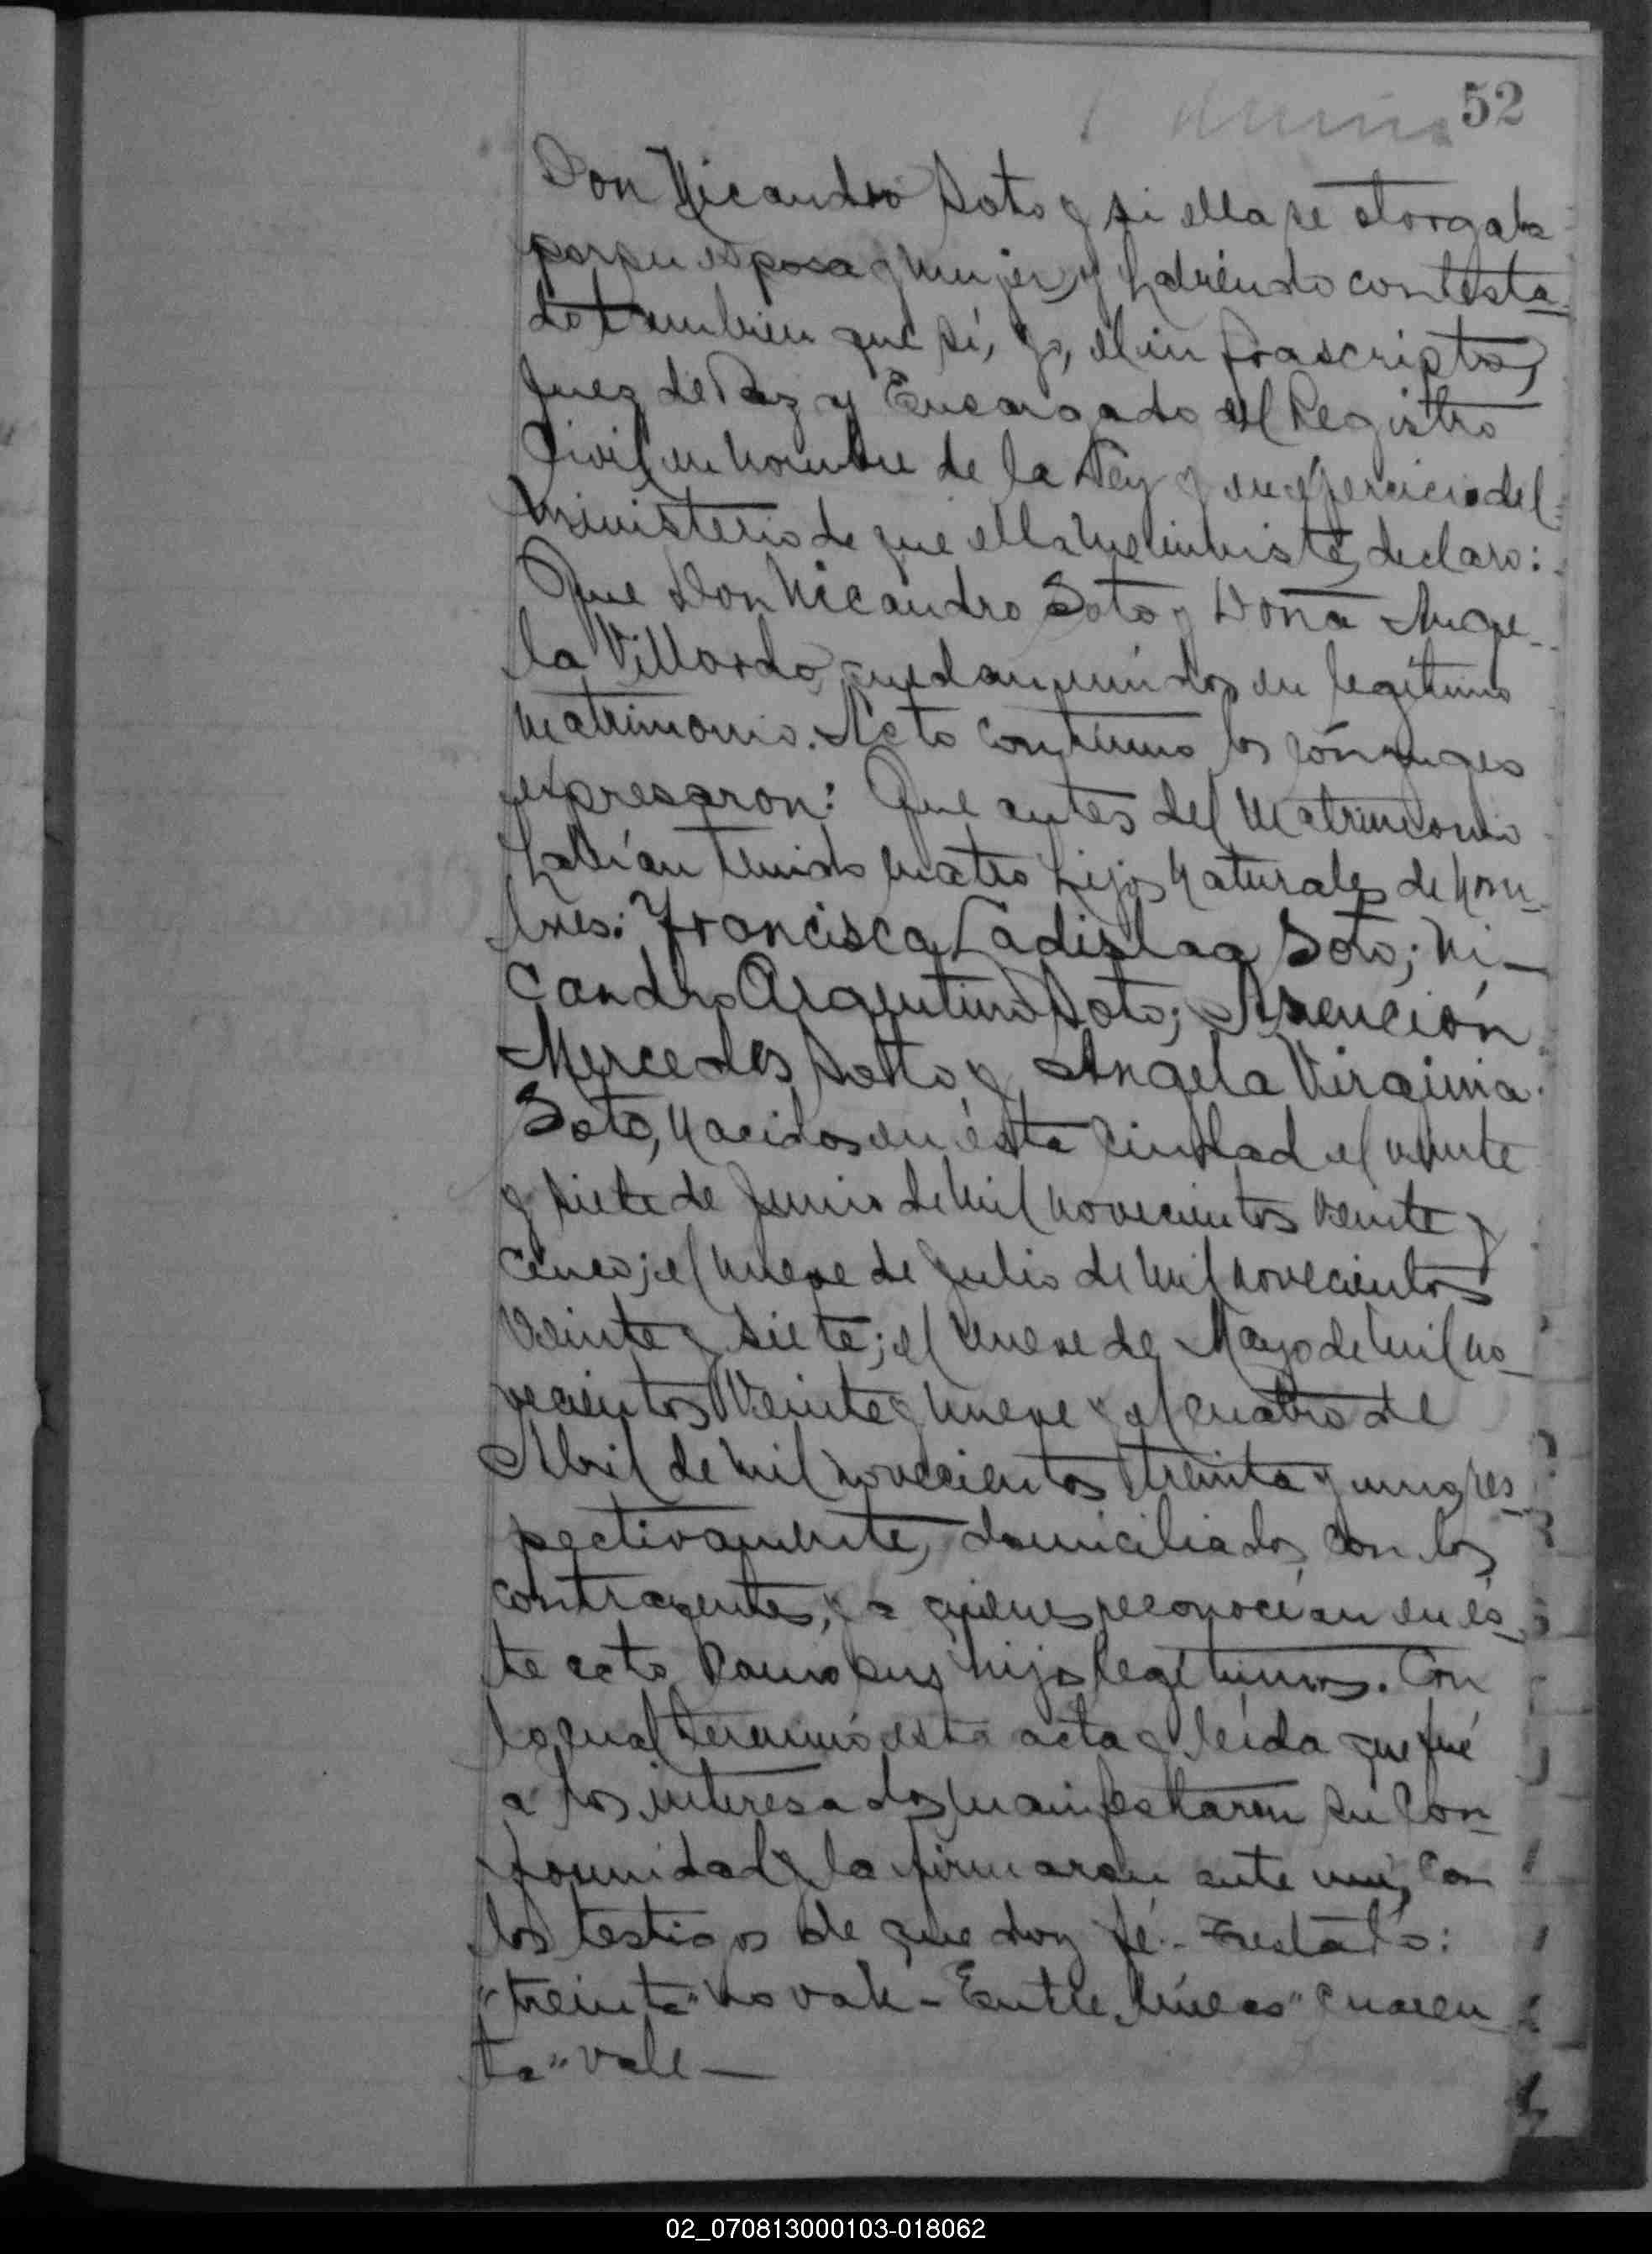 52
Don Nicandro Soto y si ella se otorgaba
por su esposa y mujer, y habiendo contesta-
do tambien que sí, yo, el infrascripto,
Juez de Paz y Encargado del Registro
Civil en nombre de la Ley y en ejercicio del
ministerio de que ella me inviste, declaro:
Que Don Nicandro Soto y Doña Ange-
la Villordo, quedan unidos en legítimo
matrimonio. Acto contínuo los cónyuges
expresaron: Que antes del matrimonio
habían tenido cuatro hijos naturales de nom-
bres: Francisca Ladislaa Soto; Ni-
candro Argentino Soto; Asención
Mercedes Soto y Angela Virginia
Soto, nacidos en ésta Ciudad el veinte
y siete de Junio de mil novecientos veinte y
cinco; el nueve de Julio de mil novecientos
veinte y siete; el nueve de Mayo de mil no-
vecientos veinte y nueve y el cuatro de
Abril de mil novecientos treinta y uno, res-
pectivamente, domiciliados con los
contrayentes, y a quienes reconocían en és-
te acto como sus hijos legítimos. Con
lo cual terminó esta acta y leída que fué
a los interesados, manifestaron su con-
formidad y la firmaron ante mí, con
los testigos de que doy fé.- Testado:
"treinta" no vale - Entre líneas "cuaren-
ta" vale -
02_070813000103-018062